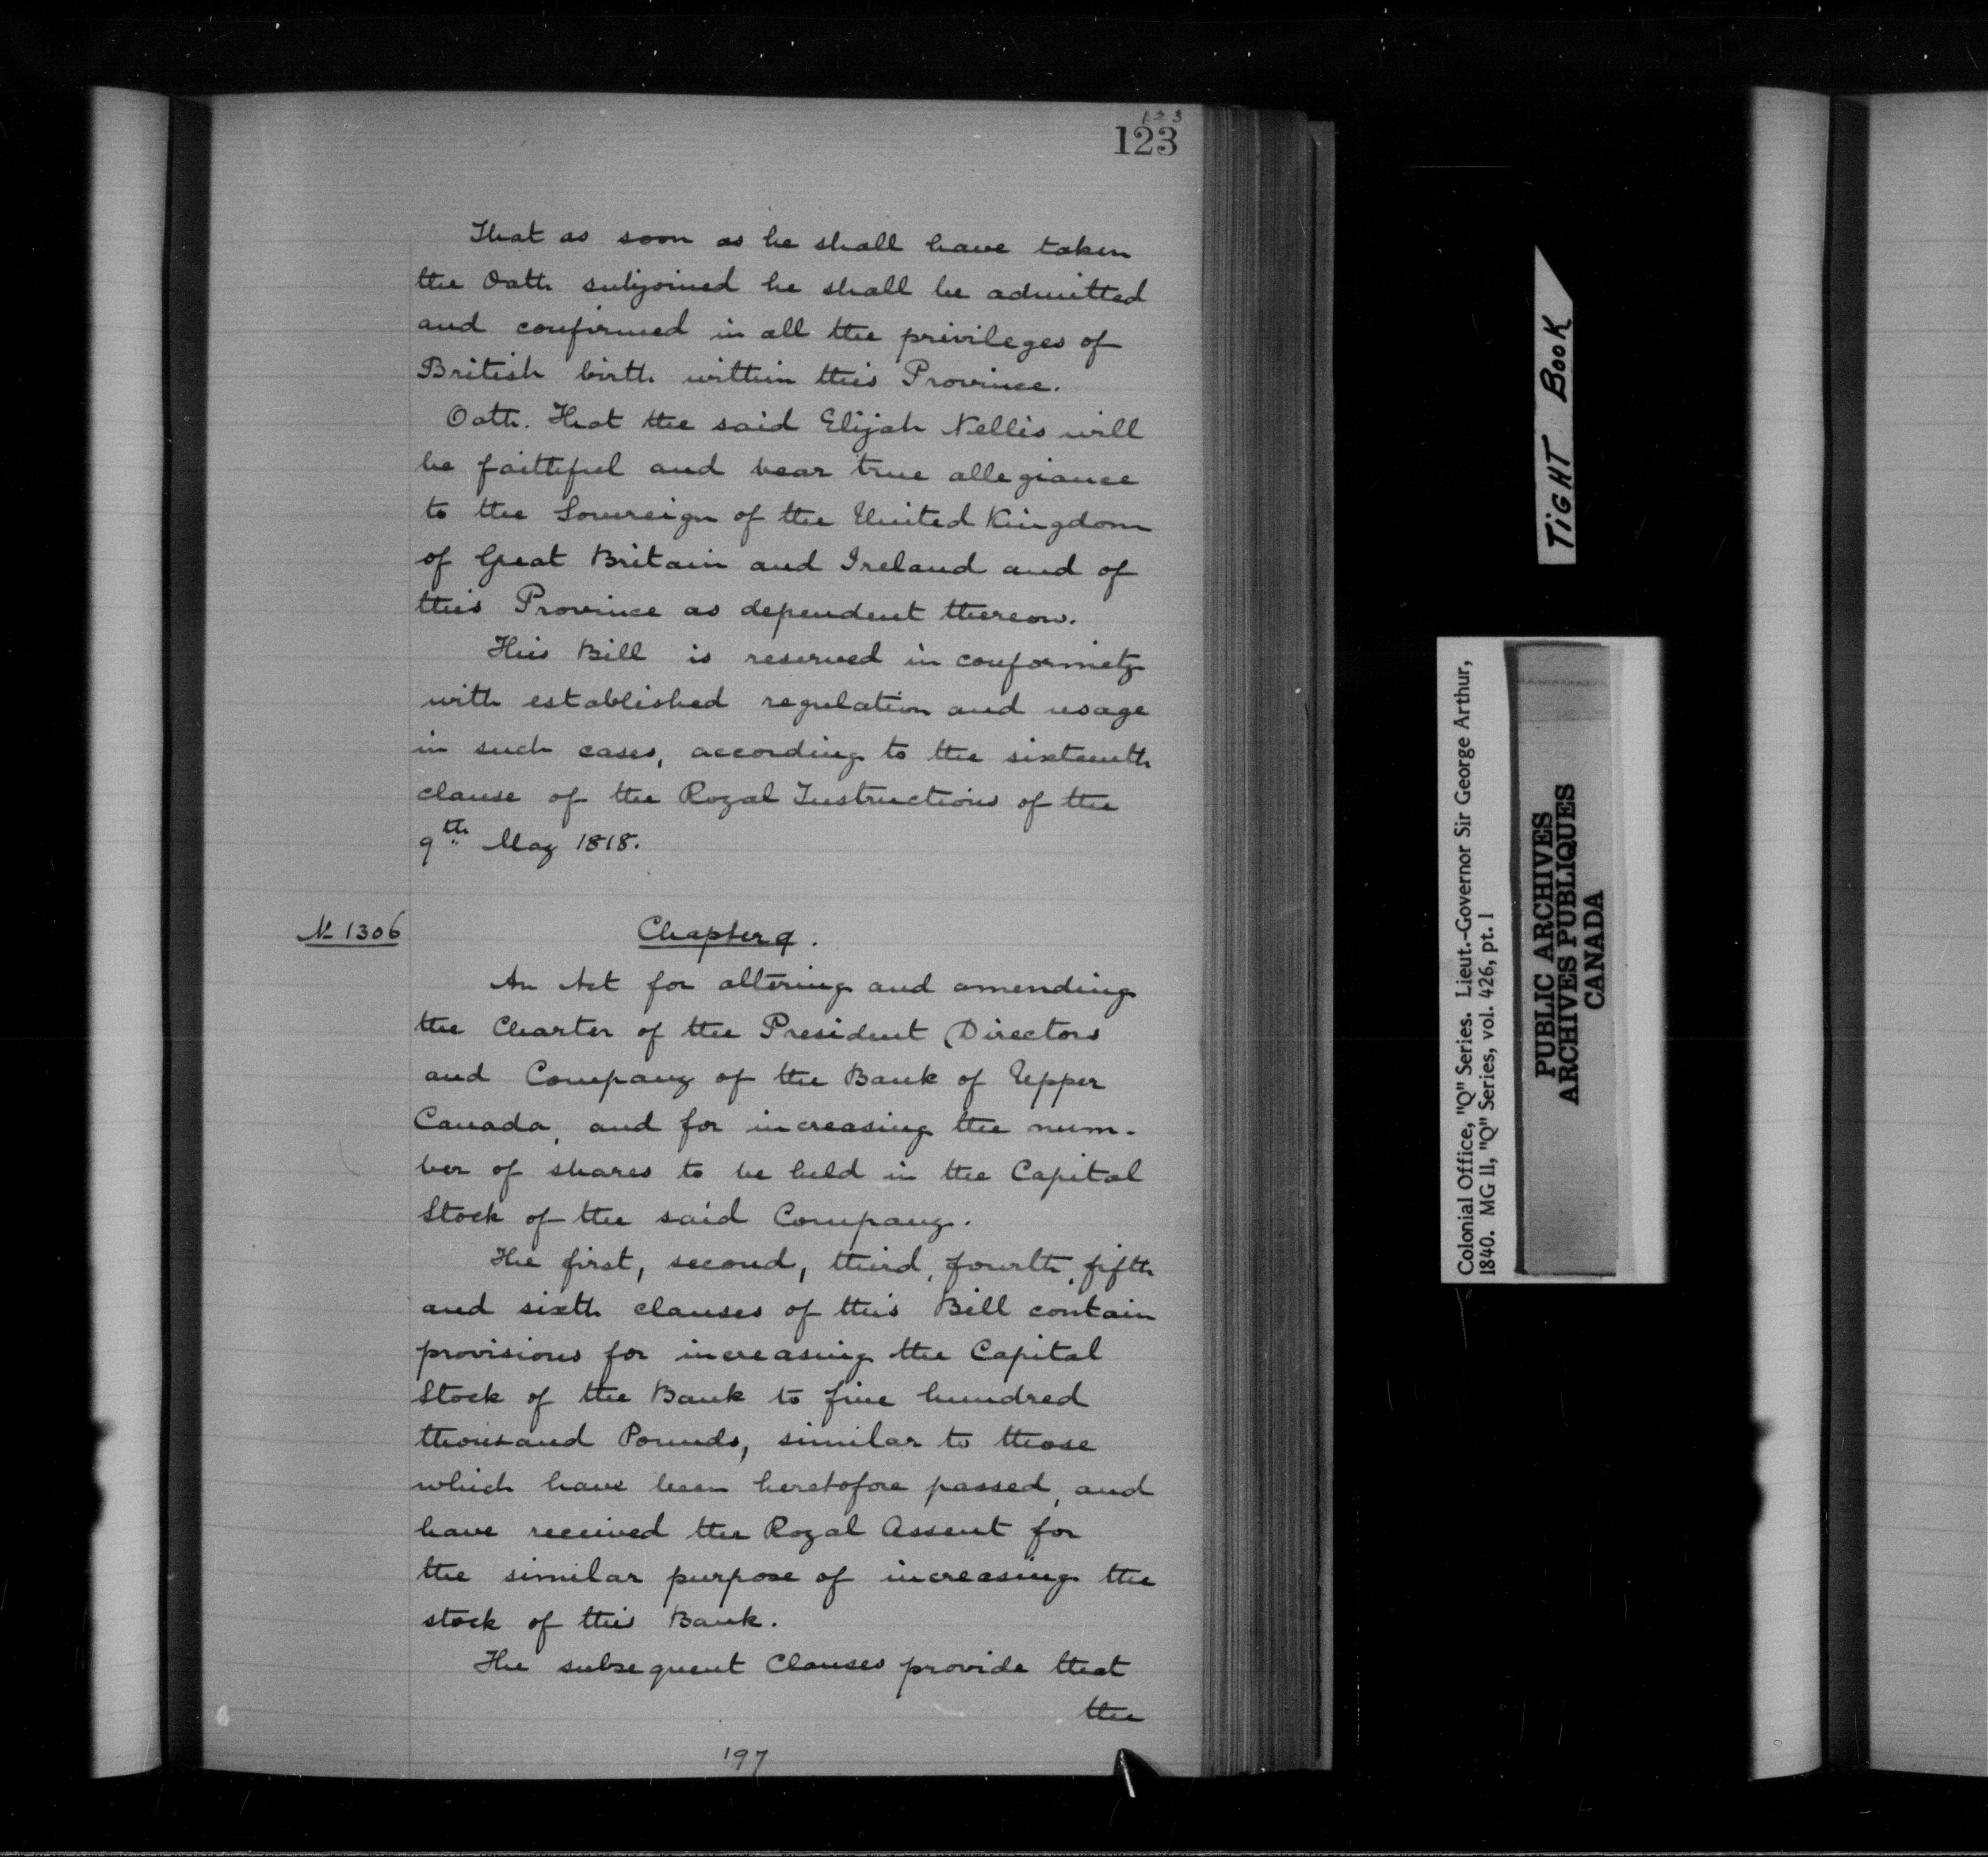 123
123
That as soon as he shall have taken
the Oath subjoined he shall be admitted
and confirmed in all the privileges of
British birth within this Province.
Oath. That the said Elijah Nellis will
be faithful and bear true allegiance
to the Sovereign of the United Kingdom
of Great Britain and Ireland and of
this Province as dependent thereon.
This Bill is reserved in conformity
with established regulation and usage
in such cases, according to the sixteenth
clause of the Royal Instructions of the
9th May 1818.
No 1306
Chapter 9.
An Act for altering and amending
the Charter of the President Directors
and Company of the Bank of Upper
Canada, and for increasing the num-
ber of shares to be held in the Capital
Stock of the said Company.
The first, second, third, fourth, fifth
and sixth clauses of this Bill contain
provisions for increasing the Capital
Stock of the Bank to five hundred
thousand Pounds, similar to those
which have been heretofore passed, and
have received the Royal Assent for
the similar purpose of increasing the
stock of this Bank.
The subsequent Clauses provide that
the
197
TIGHT BOOK
Colonial Office, "Q" Series. Lieut.-Governor Sir George Arthur,
1840. MG 11, "Q" Series, vol. 426, pt. 1
PUBLIC ARCHIVES
ARCHIVES PUBLIQUES
CANADA